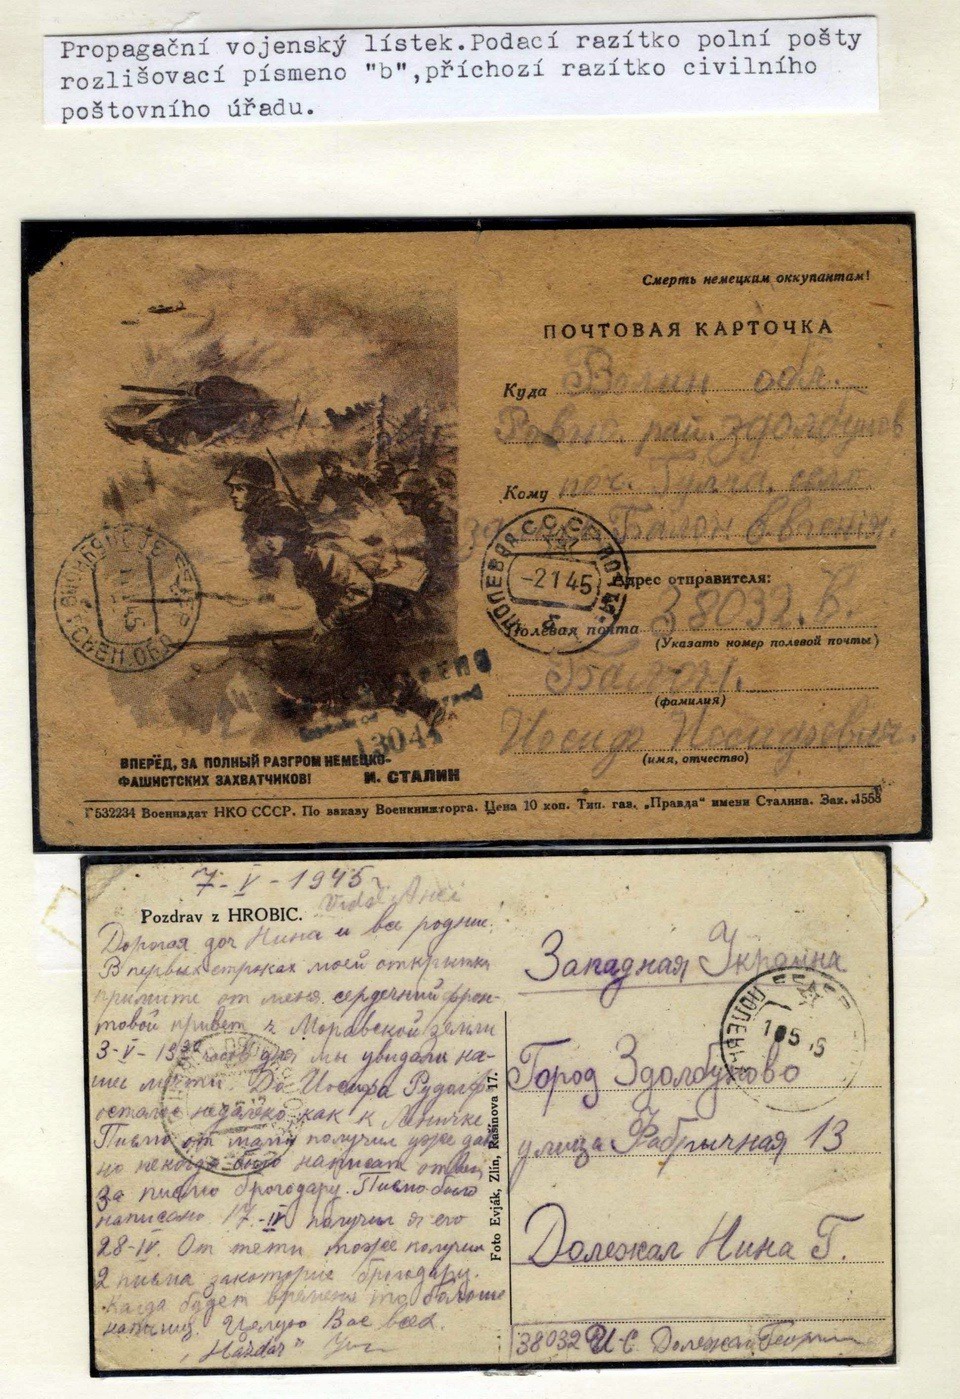 Propagační vojenský lístek.Podací razítko polní pošty
rozlišovací písmeno "b",příchozí razítko civilního
poštovního úřadu.
Смерть немецким оккупантам!
ПОЧТОВАЯ КАРТОЧКА
Куда обл.
Ровно. рай. Здолбунов
Кому поч.
Балон Евгенія.
ПОЛЕВАЯ СССР
-2 1 45
б
Адрес отправителя:
Полевая почта 38032. В.
(Указать номер полевой почты)
(фамилия)
Иосиф Иосифович.
(имя, отчество)
ВПЕРЁД, ЗА ПОЛНЫЙ РАЗГРОМ НЕМЕЦКО-
ФАШИСТСКИХ ЗАХВАТЧИКОВ! И. СТАЛИН
Г532234 Воениздат НКО СССР. По заказу Военкнижторга. Цена 10 коп. Тип. газ. „Правда“ имени Сталина. Зак. 1558
7-V-1945
Pozdrav z HROBIC.
Дорогая доч Нина и все родние.
В первых строках моей открытки
примите от меня сердечний фрон-
товой привет с Моравской земли
3-V-13 30 часов дня мы увидали на-
ши мечти. До Иосифа Рудолф
осталос недалеко как к Леничке
Писмо от мами получил уже дав
но некогда било написат ответ
За писмо брогодару. Писмо било
написано 17.-IV получил я его
28-IV. От тети тоже получил
2 писма закоторие брогодару.
Когда будет времени то больше
напишу. Целую Вас всех.
„Nazdar“
Foto Evják, Zlín, Rašínova 17.
Западная Украина
ПОЛЕВАЯ
1 05 45
Город Здолбуново
улица Фабричная 13
Долежал Нина Г.
38032 И-С Долежал Георгий